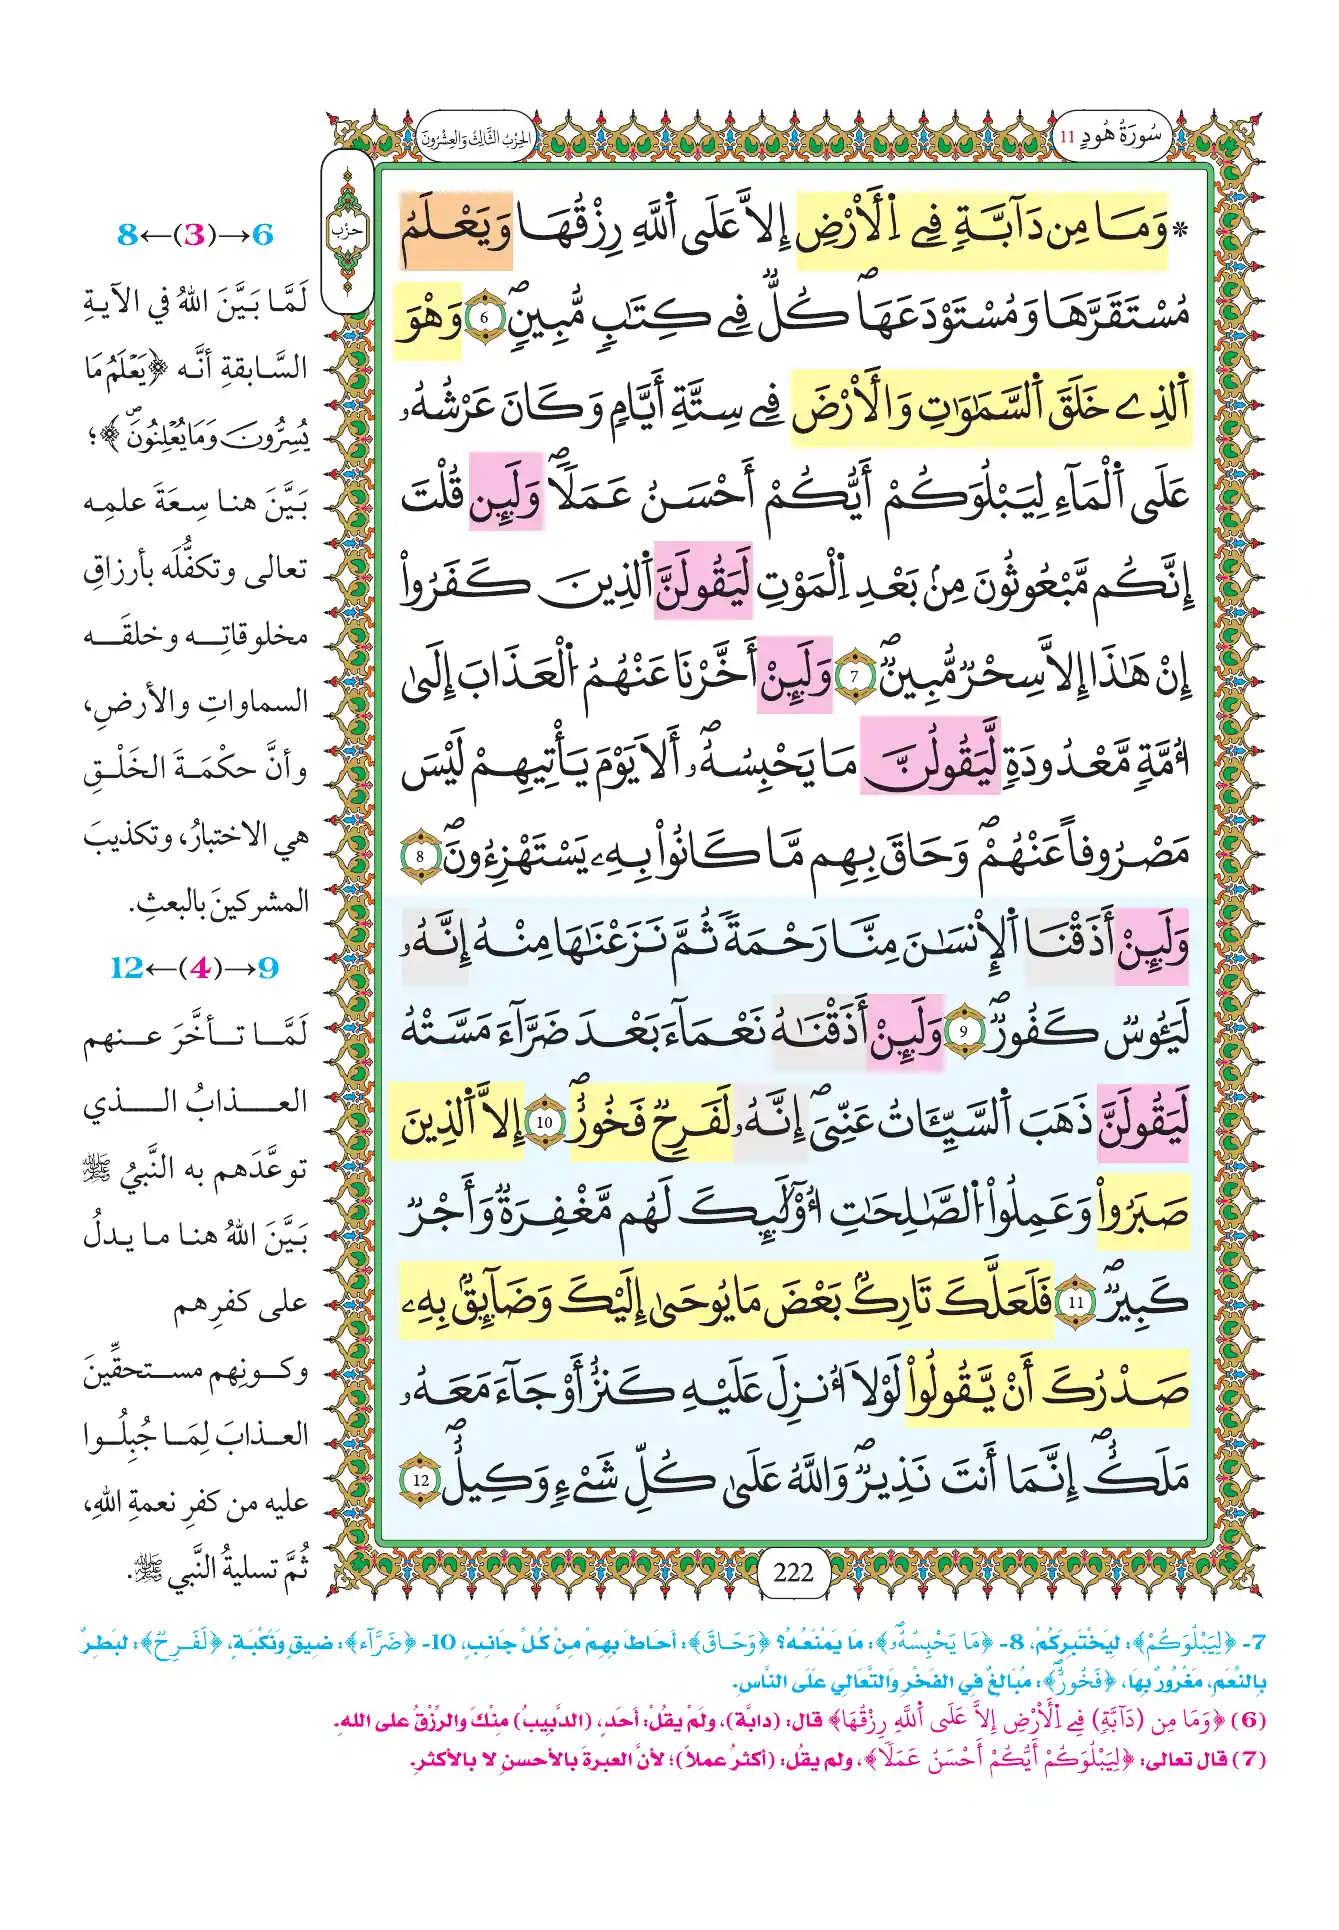 سُورَةُ هُودٍ 11
الحِزْبُ الثَّالِثُ وَالعِشْرُونَ
حِزْب
* وَمَا مِن دَآبَّةٍ فِے اِ۬لَارْضِ إِلَّا عَلَى اَ۬للَّهِ رِزْقُهَا وَيَعْلَمُ
مُسْتَقَرَّهَا وَمُسْتَوْدَعَهَاۖ كُلٌّ فِے كِتَٰبٍ مُّبِينٍۖ 6 وَهْوَ
اَ۬لذِے خَلَقَ اَ۬لسَّمَٰوَٰتِ وَالَارْضَ فِے سِتَّةِ أَيَّامٍ وَكَانَ عَرْشُهُۥ
عَلَى اَ۬لْمَآءِ لِيَبْلُوَكُمْ أَيُّكُمْ أَحْسَنُ عَمَلاٗۖ وَلَئِن قُلْتَ
إِنَّكُم مَّبْعُوثُونَ مِنۢ بَعْدِ اِ۬لْمَوْتِ لَيَقُولَنَّ اَ۬لذِينَ كَفَرُوٓاْ
إِنْ هَٰذَا إِلَّا سِحْرٌ مُّبِينٌۖ 7 وَلَئِنْ أَخَّرْنَا عَنْهُمُ اُ۬لْعَذَابَ إِلَىٰ
أُمَّةٍ مَّعْدُودَةٍ لَّيَقُولُنَّ مَا يَحْبِسُهُۥۖ أَلَا يَوْمَ يَأْتِيهِمْ لَيْسَ
مَصْرُوفاً عَنْهُمْۖ وَحَاقَ بِهِم مَّا كَانُواْ بِهِۦ يَسْتَهْزِءُونَۖ 8
وَلَئِنْ أَذَقْنَا اَ۬لْإِنسَٰنَ مِنَّا رَحْمَةٗ ثُمَّ نَزَعْنَٰهَا مِنْهُ إِنَّهُۥ
لَيَـُٔوسٌ كَفُورٌۖ 9 وَلَئِنْ أَذَقْنَٰهُ نَعْمَآءَ بَعْدَ ضَرَّآءَ مَسَّتْهُ
لَيَقُولَنَّ ذَهَبَ اَ۬لسَّيِّـَٔاتُ عَنِّيَۖ إِنَّهُۥ لَفَرِحٌ فَخُورٌۖ 10 إِلَّا اَ۬لذِينَ
صَبَرُواْ وَعَمِلُواْ اُ۬لصَّٰلِحَٰتِ أُوْلَٰٓئِكَ لَهُم مَّغْفِرَةٌ وَأَجْرٌ
كَبِيرٌۖ 11 فَلَعَلَّكَ تَارِكُۢ بَعْضَ مَا يُوحَىٰ إِلَيْكَ وَضَآئِقُۢ بِهِۦ
صَدْرُكَ أَنْ يَّقُولُواْ لَوْلَا أُنزِلَ عَلَيْهِ كَنزٌ أَوْ جَآءَ مَعَهُۥ
مَلَكٌۖ إِنَّمَا أَنتَ نَذِيرٌۖ وَاللَّهُ عَلَىٰ كُلِّ شَےْءٖ وَكِيلٌۖ 12
222
6→(3)←8
لَمَّا بَيَّنَ اللهُ في الآيةِ
السَّابقةِ أنَّه ﴿يَعْلَمُ مَا
يُسِرُّونَ وَمَا يُعْلِنُونَۖ﴾؛
بَيَّنَ هنا سِعَةَ علمِه
تعالى وتكفُّلَه بأرزاقِ
مخلوقاتِه وخلقَه
السماواتِ والأرضِ،
وأنَّ حكْمَةَ الخَلْقِ
هي الاختبارُ، وتكذيبَ
المشركينَ بالبعثِ.
9→(4)←12
لَمَّا تأخَّرَ عنهم
العذابُ الذي
توعَّدَهم به النَّبيُ ﷺ
بَيَّنَ اللهُ هنا ما يدلُ
على كفرِهم
وكونِهم مستحقِّينَ
العذابَ لِمَا جُبِلُوا
عليه من كفرِ نعمةِ اللهِ،
ثُمَّ تسليةُ النَّبي ﷺ.
7- ﴿لِيَبْلُوَكُمْ﴾: لِيَخْتَبِرَكُمْ، 8- ﴿مَا يَحْبِسُهُۥۖ﴾: مَا يَمْنَعُهُ؟ ﴿وَحَاقَ﴾: أَحَاطَ بِهِمْ مِنْ كُلِّ جَانِبٍ، 10- ﴿ضَرَّآءَ﴾: ضِيقٍ وَنَكْبَةٍ، ﴿لَفَرِحٌ﴾: لَبَطِرٌ
بِالنِّعَمِ، مَغْرُورٌ بِهَا، ﴿فَخُورٌۖ﴾: مُبَالِغٌ فِي الفَخْرِ وَالتَّعَالِي عَلَى النَّاسِ.
(6) ﴿وَمَا مِن (دَآبَّةٍ) فِے اِ۬لَارْضِ إِلَّا عَلَى اَ۬للَّهِ رِزْقُهَا﴾ قال: (دابَّة)، ولَمْ يقُلْ: أحَد، (الدَّبِيبُ) مِنْكَ والرِّزْقُ على اللهِ.
(7) قال تعالى: ﴿لِيَبْلُوَكُمْ أَيُّكُمْ أَحْسَنُ عَمَلاٗ﴾، ولم يقُل: (أكثرُ عملاً)؛ لأنَّ العبرةَ بالأحسنِ لا بالأكثرِ.